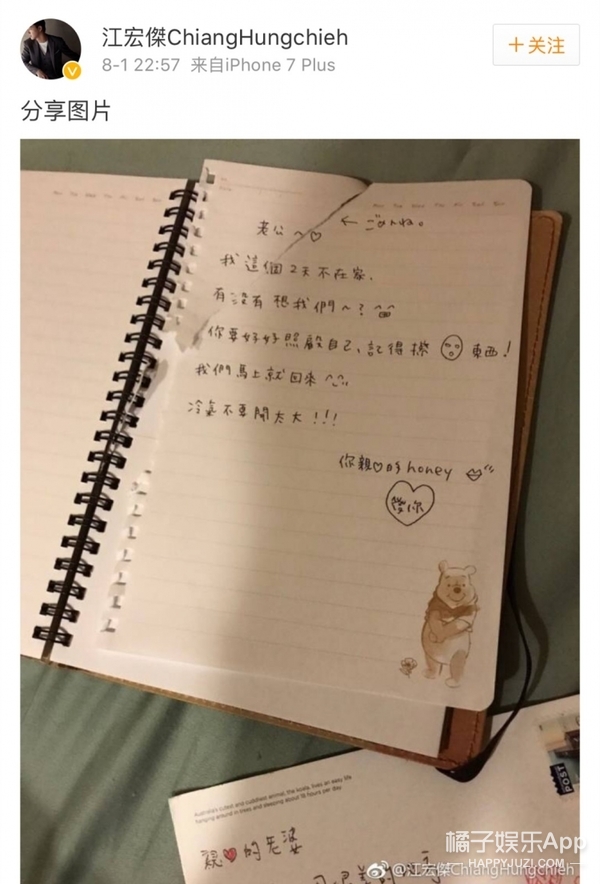 江宏傑ChiangHungchieh
8-1 22:57 来自iPhone 7 Plus
+关注
分享图片
老公～♡ ← ごめんね。
我這個2天不在家.
有沒有想我們～?
你要好好照顧自己、記得擦 東西!
我們馬上就回來 ^_^
冷氣不要開太大!!!
你親♡的honey
愛你
Australia's cutest and cuddliest animal, the koala, lives an easy life
hanging around in trees and sleeping about 18 hours per day
POST
親♥的老婆
橘子娱乐App
@江宏傑ChiangHungchieh
HAPPYJUZI.COM